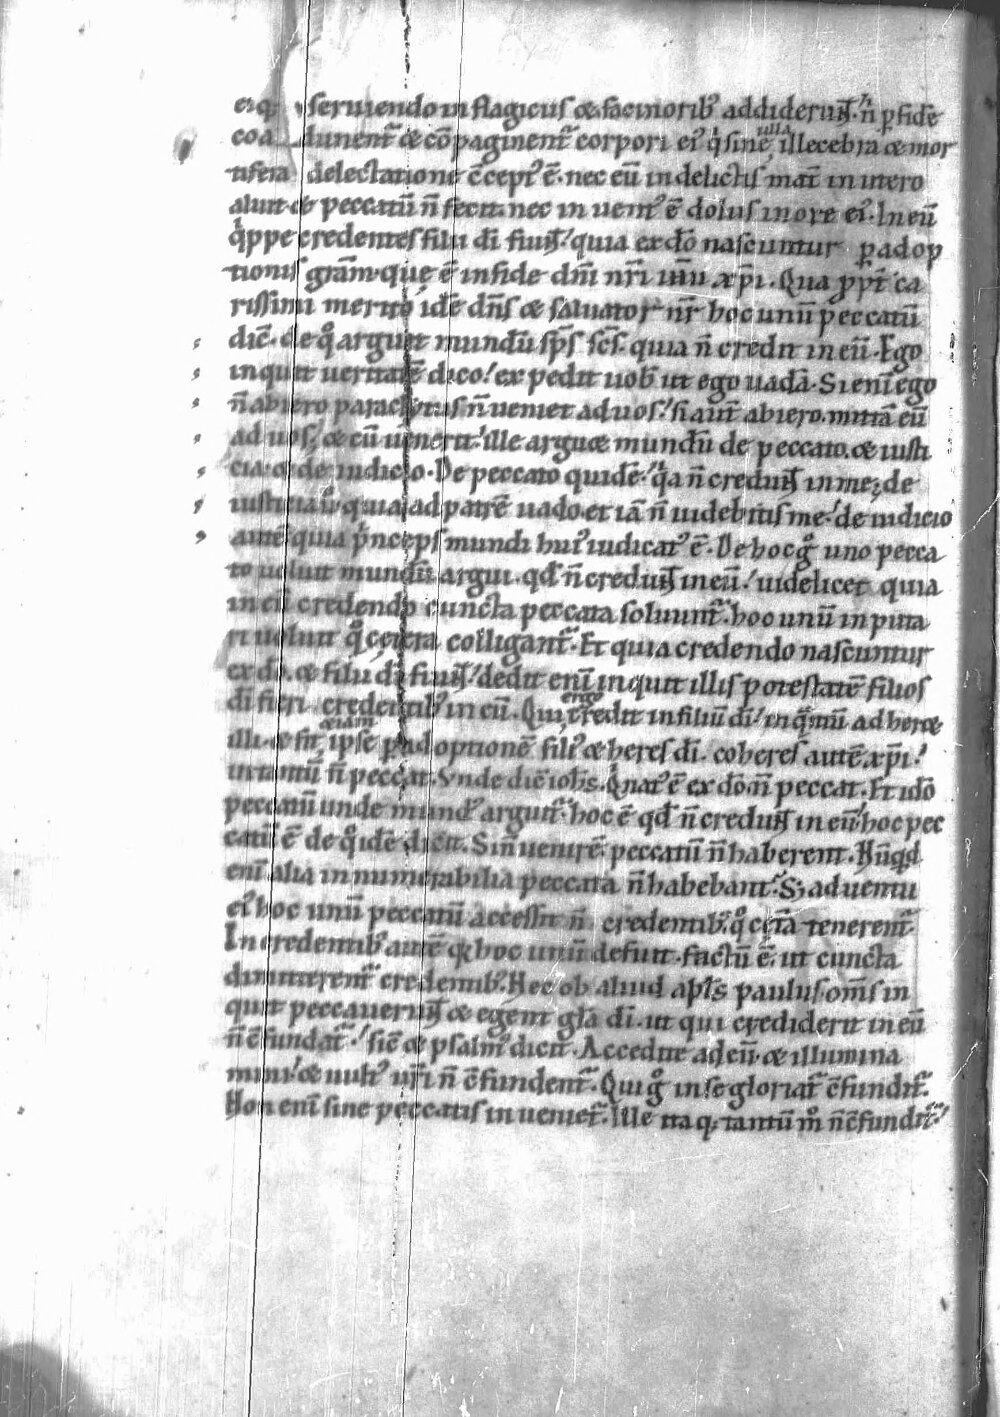 eisq; seruiendo in flagiciis & facinorib; addider̄t. n̄ ꝑ fidē
coadunent᷑ & cōpaginent᷑ corpori ei᷒ q sine ulla illecebra & mor
tifera delectatione cͨcept᷒ ē. nec eū in delictis mat̄ in utero
aluit & peccatū n̄ fecit. nec inuent᷒ ē dolus in ore ei᷒. In eū
qͥppe credentes filii di᷑ fiunt. quia ex dō nascuntur ꝑ adop
tionis grām. que ē in fide dn̄i nr̄i ih̄u xp̄i. Qua ꝓpt̄ ca
rissimi merito idē dn̄s & saluator nr̄ hoc unū peccatū
dic̄. de qͦ arguit mundū sp̄s sc̄s. quia n̄ credit in eū. Ego
inquit ueritatē dico. expedit uob̄ ut ego uadā. Si eni᷑ ego
n̄ abiero paraclytus n̄ ueniet ad uos. si aut̄ abiero. mittā eū
ad uos. & cū uenerit. ille arguet mundū de peccato. & iusti
cia. & de iudicio. De peccato quidē. qͥa n̄ credunt in me. de
iusticia ů quia ad patrē uado. et iā n̄ uidebitis me. de iudicio
autē quia pͥnceps mundi hui᷒ iudicat᷒ ē. De hoc gͦ uno pecca
to uoluit mundū argui. qd̄ n̄ credunt in eū. uidelicet quia
in eū credendo cuncta peccata soluunt᷑. hoc unū inputa
ri uoluit qͦ cetera colligant᷑. Et quia credendo nascuntur
ex dō. & filii di᷑ fiunt. dedit eni᷑ inquit illis potestatē filios
di᷑ fieri credentib; in eū. Qui ergo credit in filiū di᷑. inqͣntū adheret
illi. & fit etiam ipse ꝑ adoptionē fili᷒ & heres di᷑. coheres autē xp̄i.
intantū n̄ peccat. Vnde dic̄ ioh̄s. Qͥ nat᷒ ē ex dō n̄ peccat. Et idō
peccatū unde mund᷒ arguit᷑. hoc ē qd̄ n̄ credunt in eū. hoc pec
catū ē de qͦ idē dicit. Si n̄ uenirē. peccatū n̄ haberent. Nūqͥd
eni᷑ alia innumerabilia peccata n̄ habebant. S; aduentu
ei᷒ hoc unū peccatū accessit n̄ credentib; qͦ cet̄a tenerent᷑.
In credentib; autē qꝫ hoc unū defuit. factū ē. ut cuncta
dimitterent᷑ credentib;. Nec ob aliud apl̄s paulus. om̄s in
quit peccauerunt & egent gl̄a di᷑. ut qui crediderit in eū
n̄ cͨfundat᷑. sic̄ & psalm᷒ dicit. Accedite ad eū. & illumina
mini. & uult᷒ ur̄i n̄ cͨfundent᷑. Qui gͦ in se gloriat᷑ cͨfundit᷑.
Non eni᷑ sine peccatis inueniet᷑. Ille itaq; tantū m̊ n̄ cͨfundit᷑.